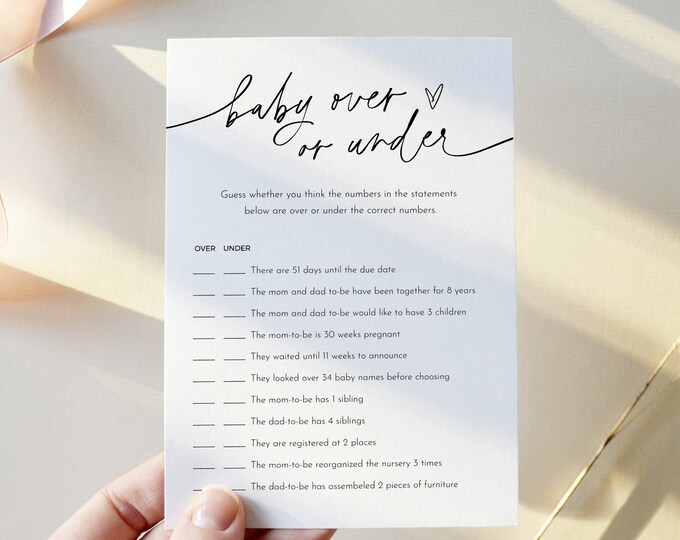 baby over
or under
Guess whether you think the numbers in the statements
below are over or under the correct numbers.
OVER UNDER
There are 51 days until the due date
The mom and dad to-be have been together for 8 years
The mom and dad to-be would like to have 3 children
The mom-to-be is 30 weeks pregnant
They waited until 11 weeks to announce
They looked over 34 baby names before choosing
The mom-to-be has 1 sibling
The dad-to-be has 4 siblings
They are registered at 2 places
The mom-to-be reorganized the nursery 3 times
The dad-to-be has assembeled 2 pieces of furniture